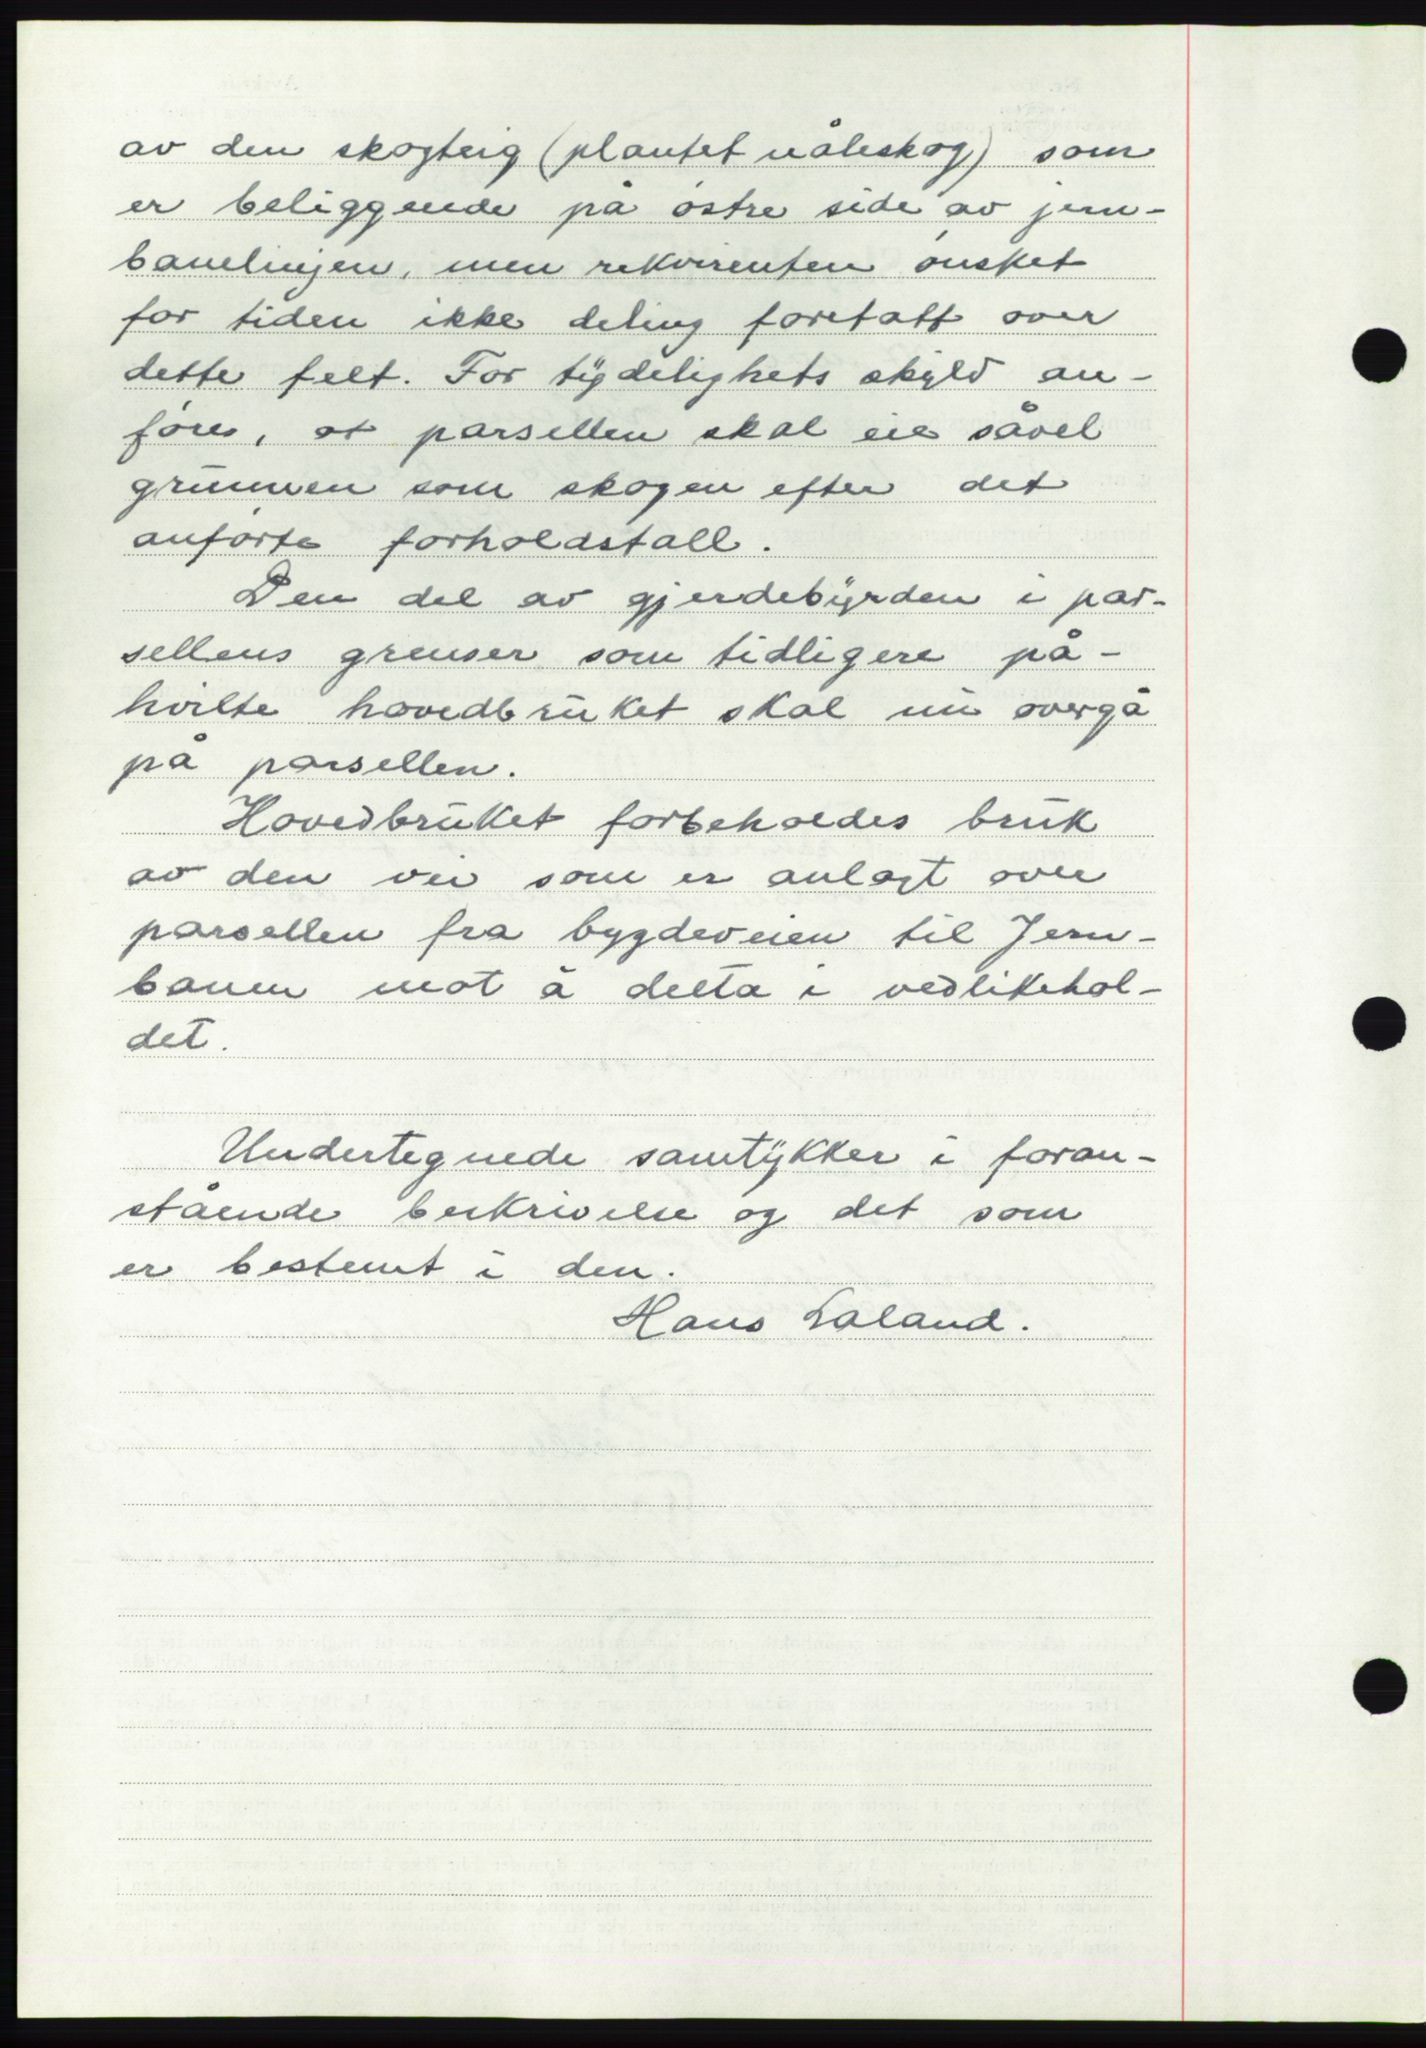 av den skogteig (plantet nåleskog) som
er beliggende på østre side av jern-
banelinjen, men rekvirenten ønsket
for tiden ikke deling foretatt over
dette felt. For tydelighets skyld an-
føres, at parsellen skal eie såvel
grunnen som skogen efter det
anførte forholdstall.
Den del av gjerdebyrden i par-
sellens grenser som tidligere på-
hvilte hovedbruket skal nu overgå
på parsellen.
Hovedbruket forbeholdes bruk
av den vei som er anlagt over
parsellen fra bygdeveien til Jern-
banen mot å delta i vedlikehol-
det.
Undertegnede samtykker i foran-
stående beskrivelse og det som
er bestemt i den.
Hans Laland.